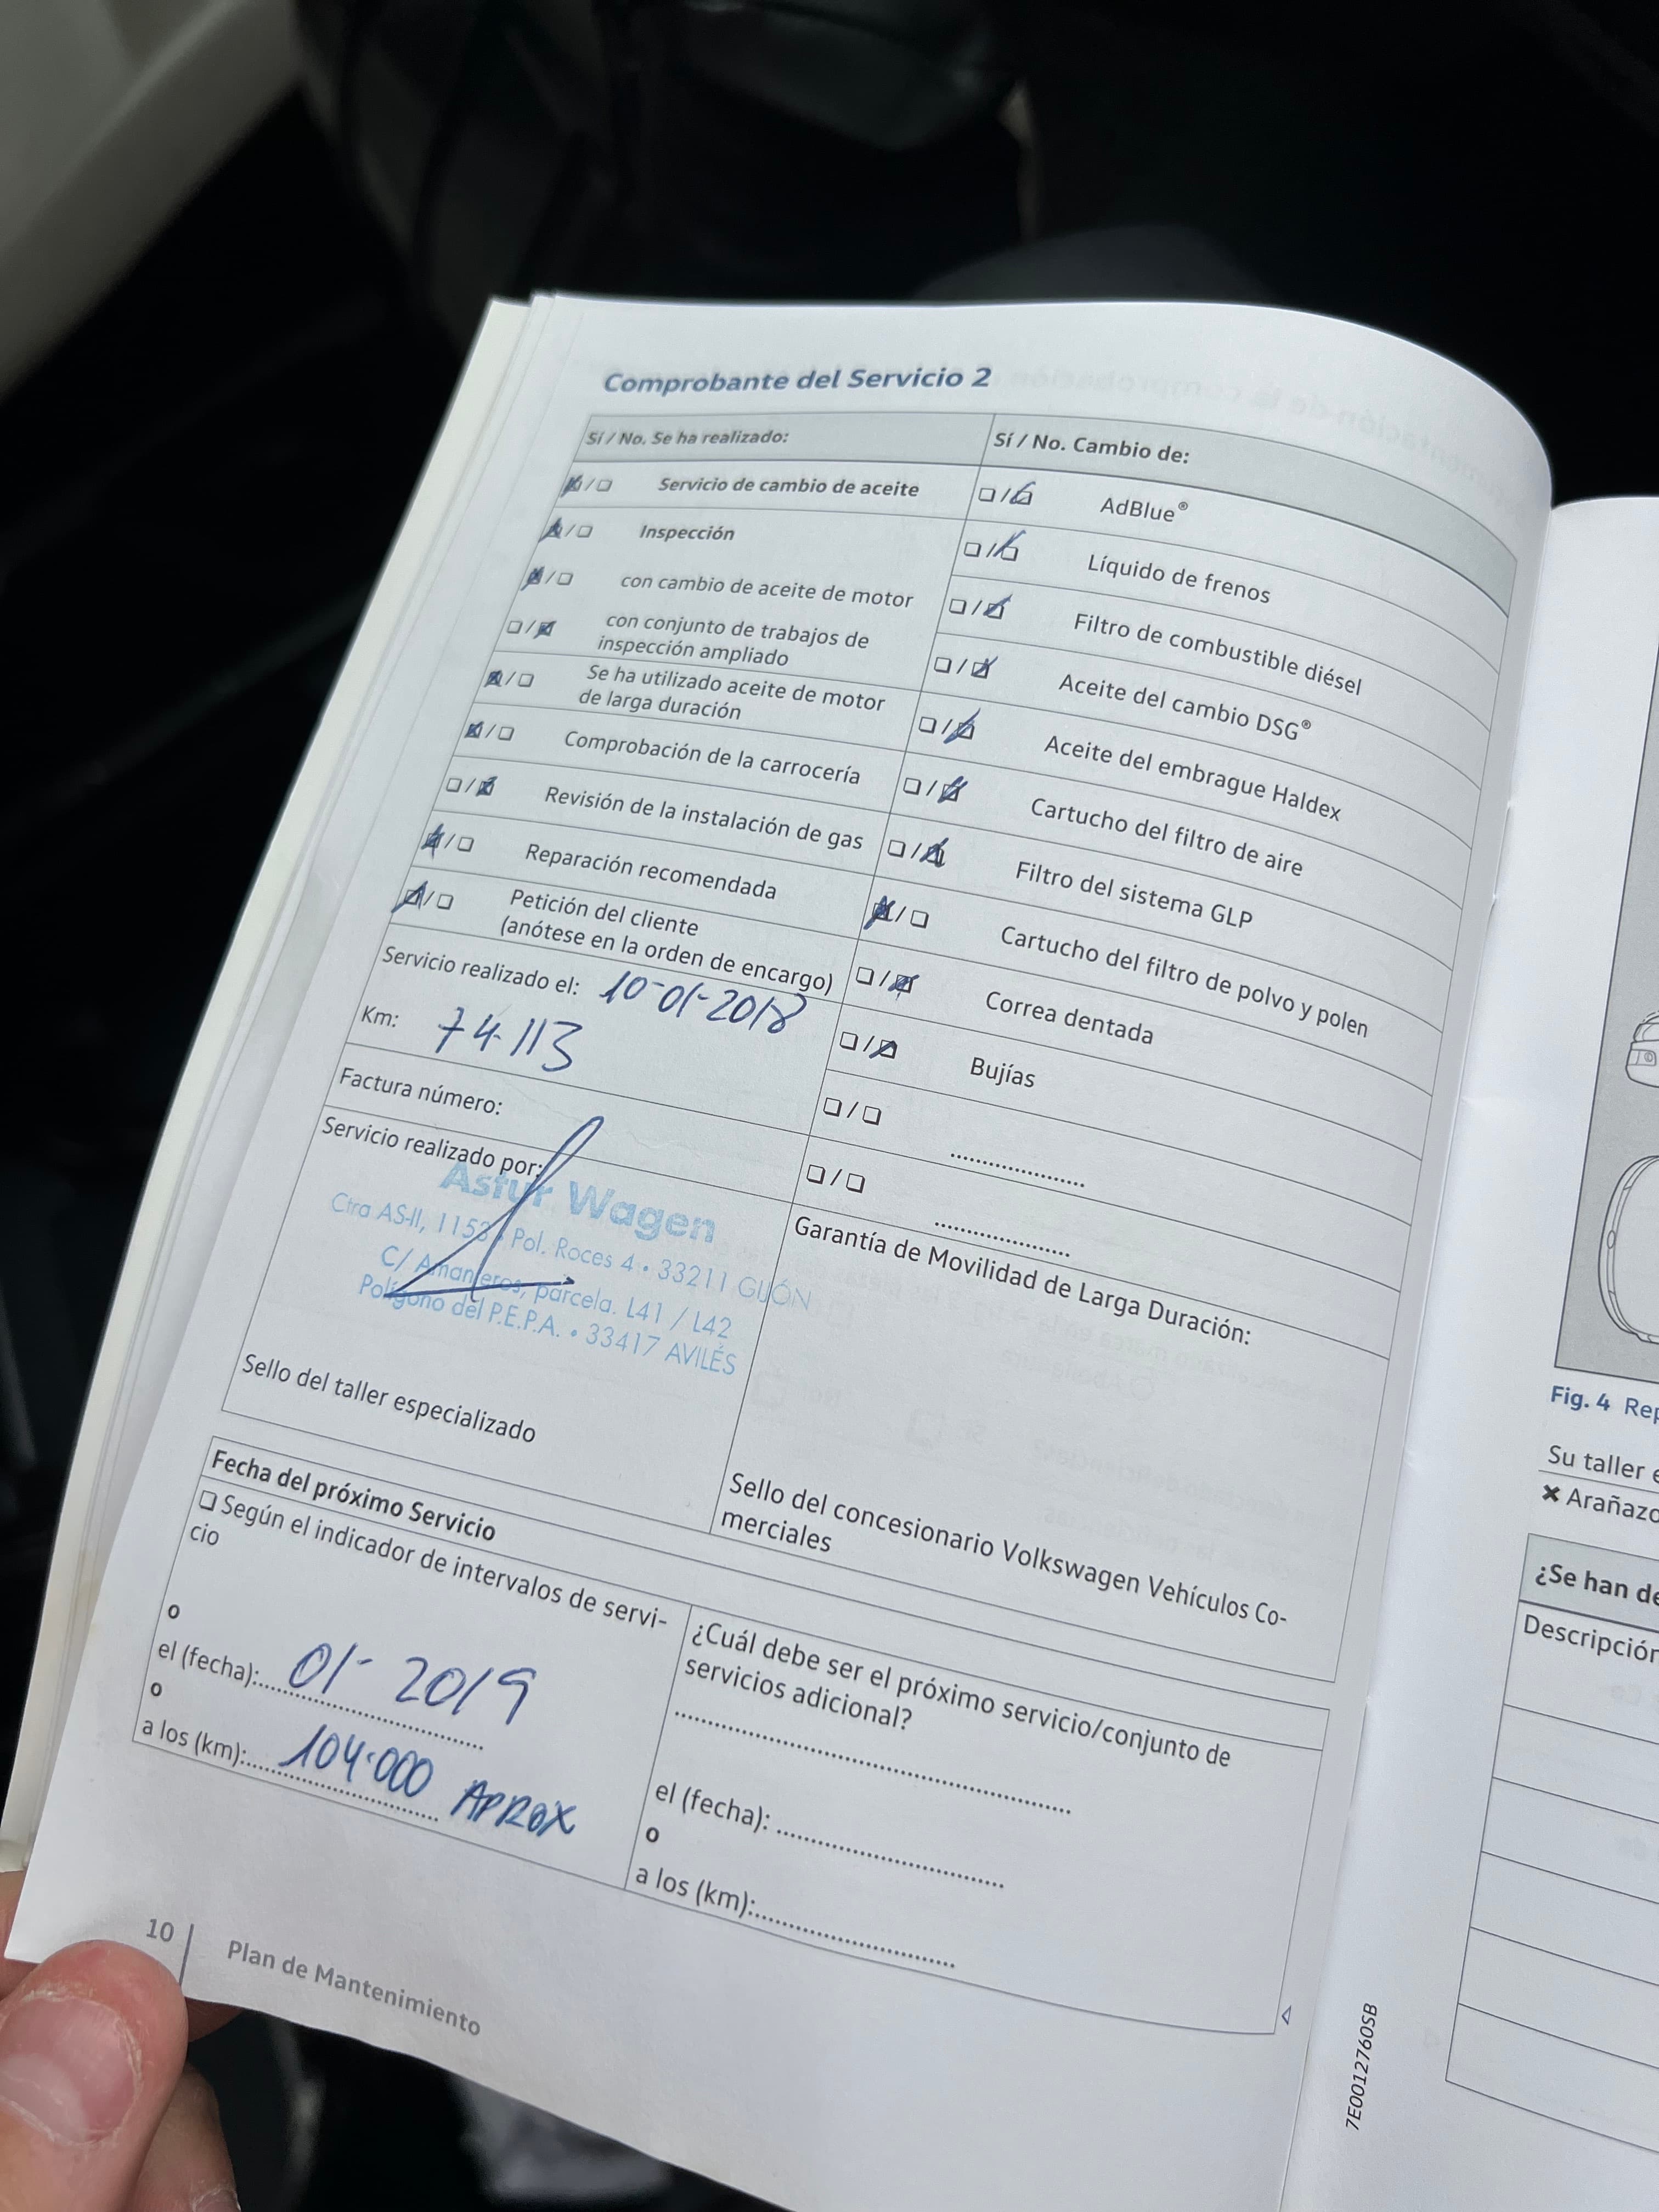 Comprobante del Servicio 2
Sí / No. Se ha realizado:
❏/❏ Servicio de cambio de aceite
❏/❏ Inspección
❏/❏ con cambio de aceite de motor
❏/❏ con conjunto de trabajos de
inspección ampliado
❏/❏ Se ha utilizado aceite de motor
de larga duración
❏/❏ Comprobación de la carrocería
❏/❏ Revisión de la instalación de gas
❏/❏ Reparación recomendada
❏/❏ Petición del cliente
(anótese en la orden de encargo)
Servicio realizado el: 10-01-2018
Km: 74.113
Factura número:
Servicio realizado por:
Astur Wagen
Ctra AS-II, 1153 Pol. Roces 4 • 33211 GIJÓN
C/ Amanteros, parcela. L41 / L42
Polígono del P.E.P.A. • 33417 AVILÉS
Sello del taller especializado
Sí / No. Cambio de:
❏/❏ AdBlue®
❏/❏ Líquido de frenos
❏/❏ Filtro de combustible diésel
❏/❏ Aceite del cambio DSG®
❏/❏ Aceite del embrague Haldex
❏/❏ Cartucho del filtro de aire
❏/❏ Filtro del sistema GLP
❏/❏ Cartucho del filtro de polvo y polen
❏/❏ Correa dentada
❏/❏ Bujías
❏/❏ ....................
❏/❏ ....................
Garantía de Movilidad de Larga Duración:
Sello del concesionario Volkswagen Vehículos Co-
merciales
Fecha del próximo Servicio
❏ Según el indicador de intervalos de servi-
cio
o
el (fecha): 01-2019
o
a los (km): 104.000 APROX
¿Cuál debe ser el próximo servicio/conjunto de
servicios adicional?
el (fecha): ....................
o
a los (km): ....................
10 Plan de Mantenimiento
7E0012760SB
Fig. 4 Rep
Su taller e
✖ Arañazo
¿Se han de
Descripción